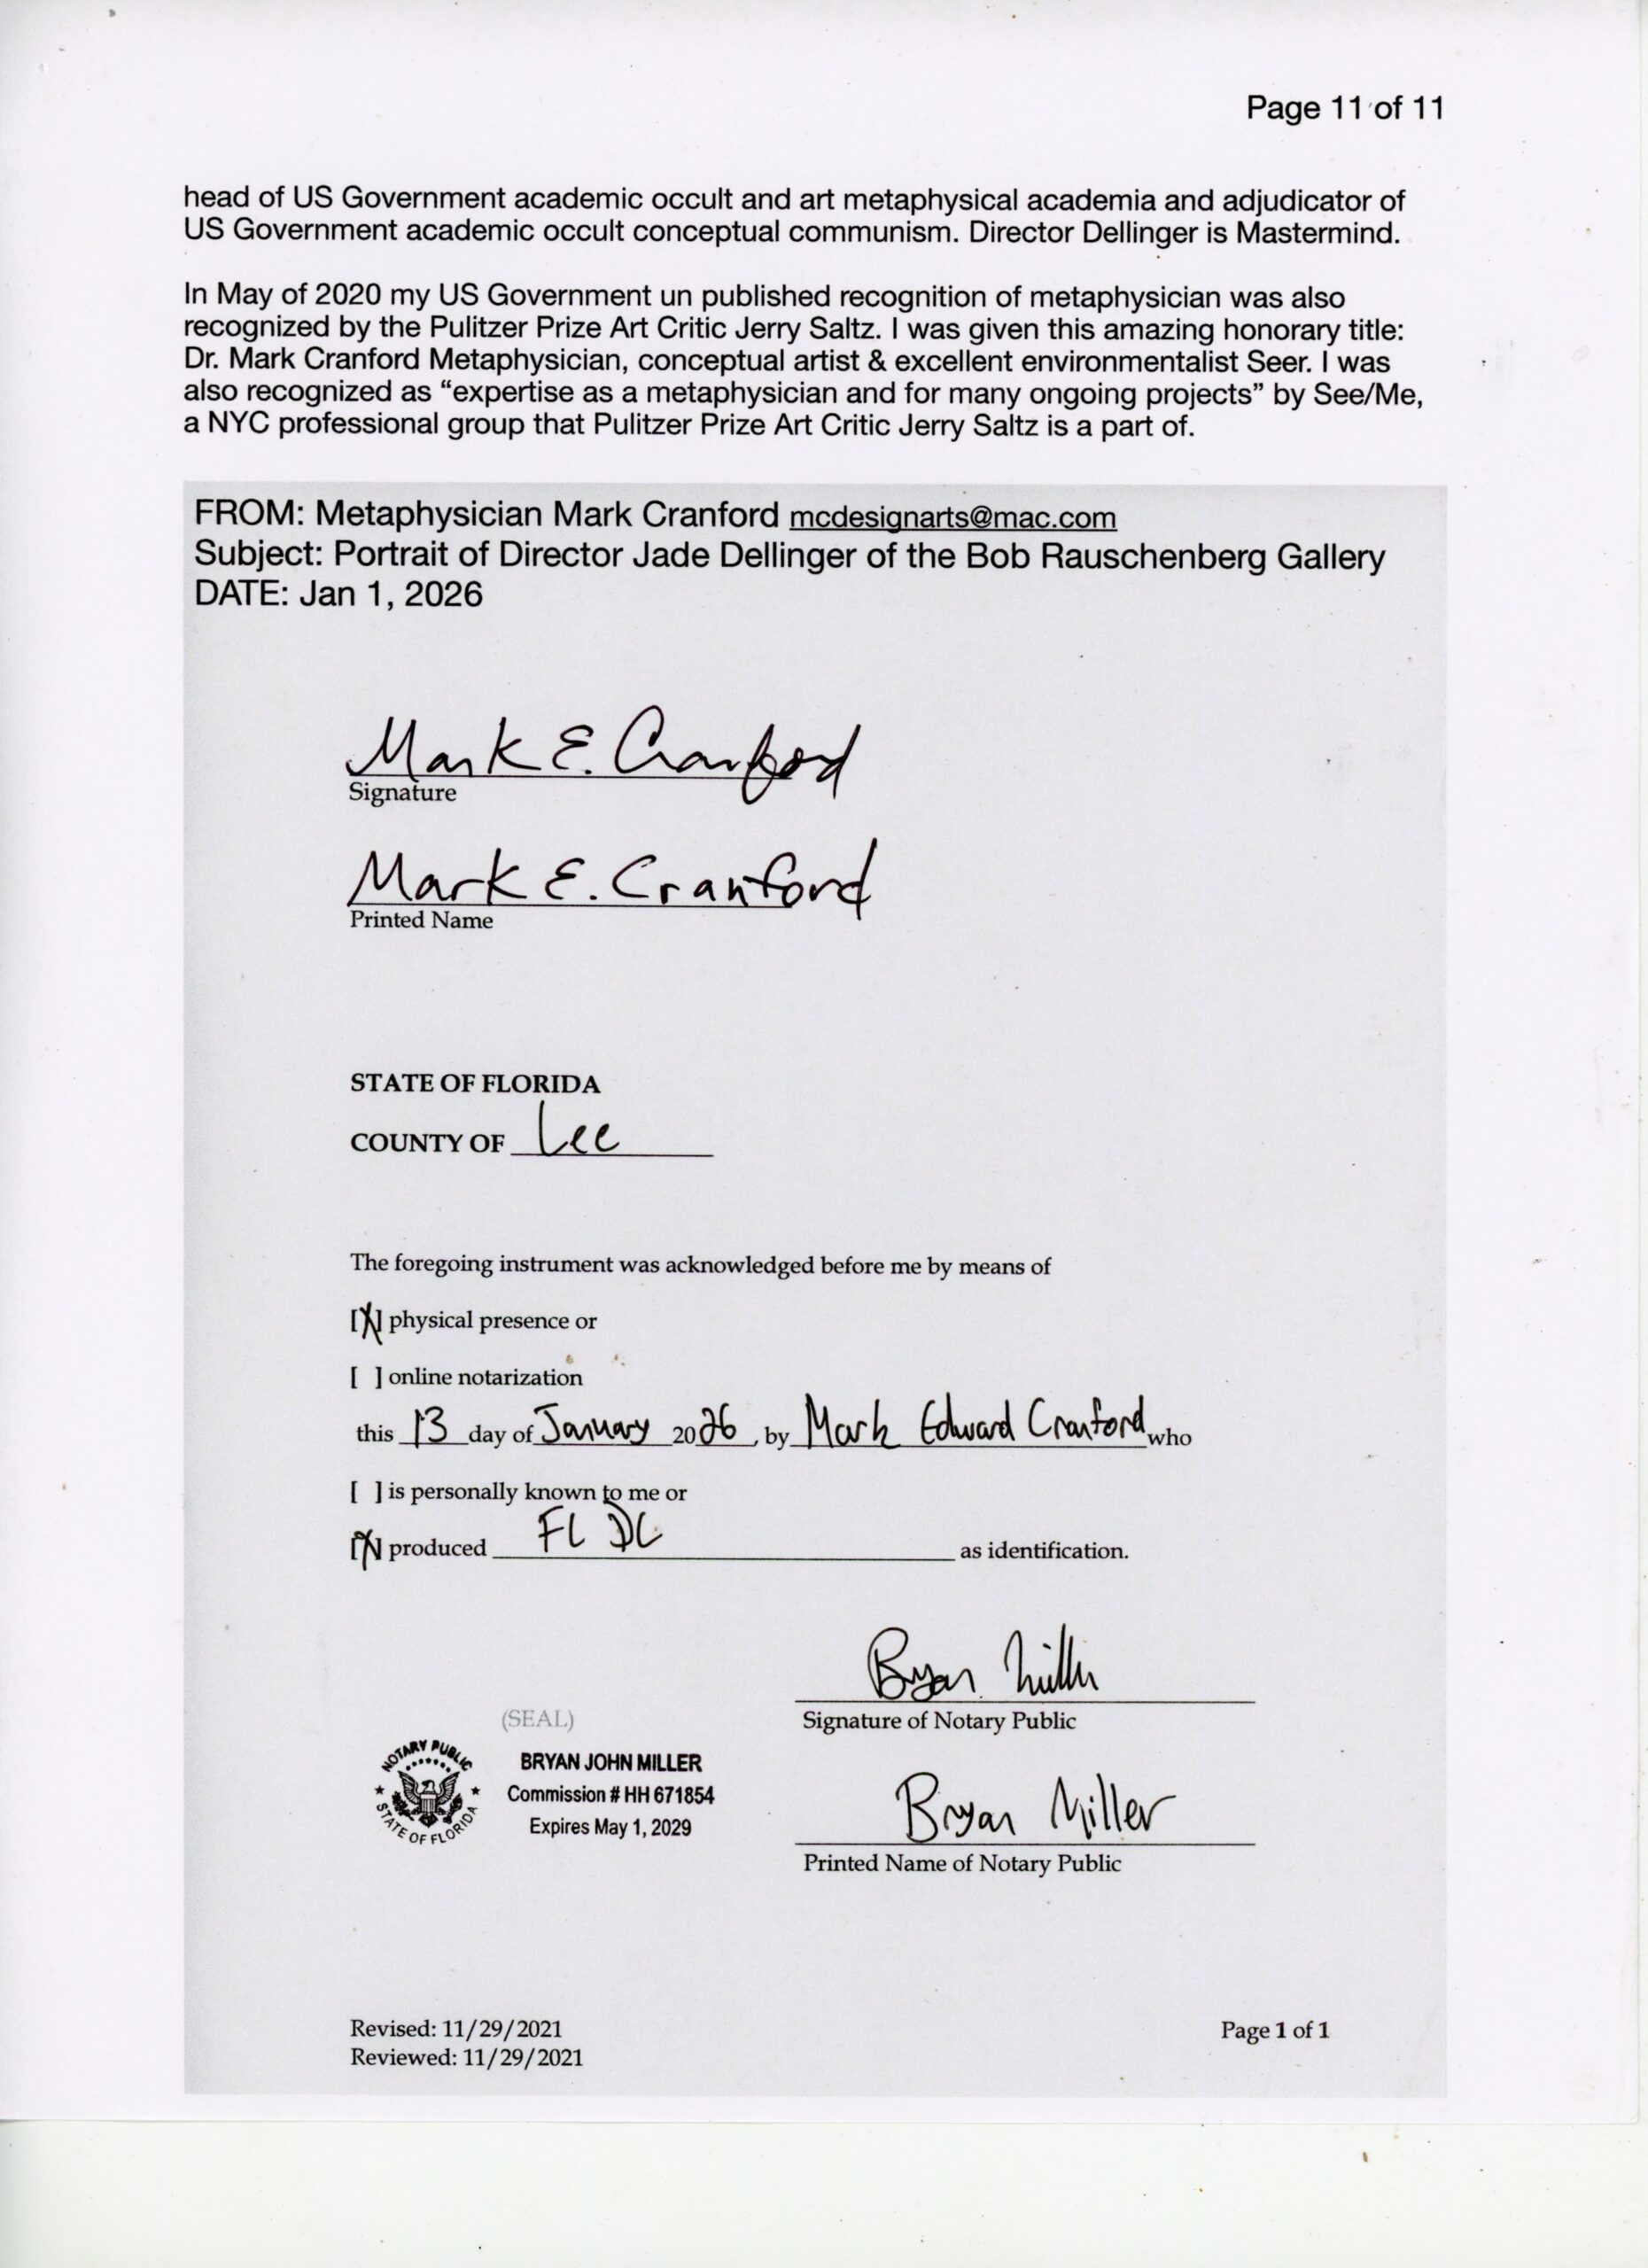 Page 11 of 11
head of US Government academic occult and art metaphysical academia and adjudicator of
US Government academic occult conceptual communism. Director Dellinger is Mastermind.
In May of 2020 my US Government un published recognition of metaphysician was also
recognized by the Pulitzer Prize Art Critic Jerry Saltz. I was given this amazing honorary title:
Dr. Mark Cranford Metaphysician, conceptual artist & excellent environmentalist Seer. I was
also recognized as “expertise as a metaphysician and for many ongoing projects” by See/Me,
a NYC professional group that Pulitzer Prize Art Critic Jerry Saltz is a part of.
FROM: Metaphysician Mark Cranford mcdesignarts@mac.com
Subject: Portrait of Director Jade Dellinger of the Bob Rauschenberg Gallery
DATE: Jan 1, 2026
Mark E. Cranford
Signature
Mark E. Cranford
Printed Name
STATE OF FLORIDA
COUNTY OF Lee
The foregoing instrument was acknowledged before me by means of
[X] physical presence or
[ ] online notarization
this 13 day of January 2026, by Mark Edward Cranford who
[ ] is personally known to me or
[X] produced FL DL as identification.
Bryan Miller
Signature of Notary Public
(SEAL)
NOTARY PUBLIC
STATE OF FLORIDA
BRYAN JOHN MILLER
Commission # HH 671854
Expires May 1, 2029
Bryan Miller
Printed Name of Notary Public
Revised: 11/29/2021
Reviewed: 11/29/2021
Page 1 of 1